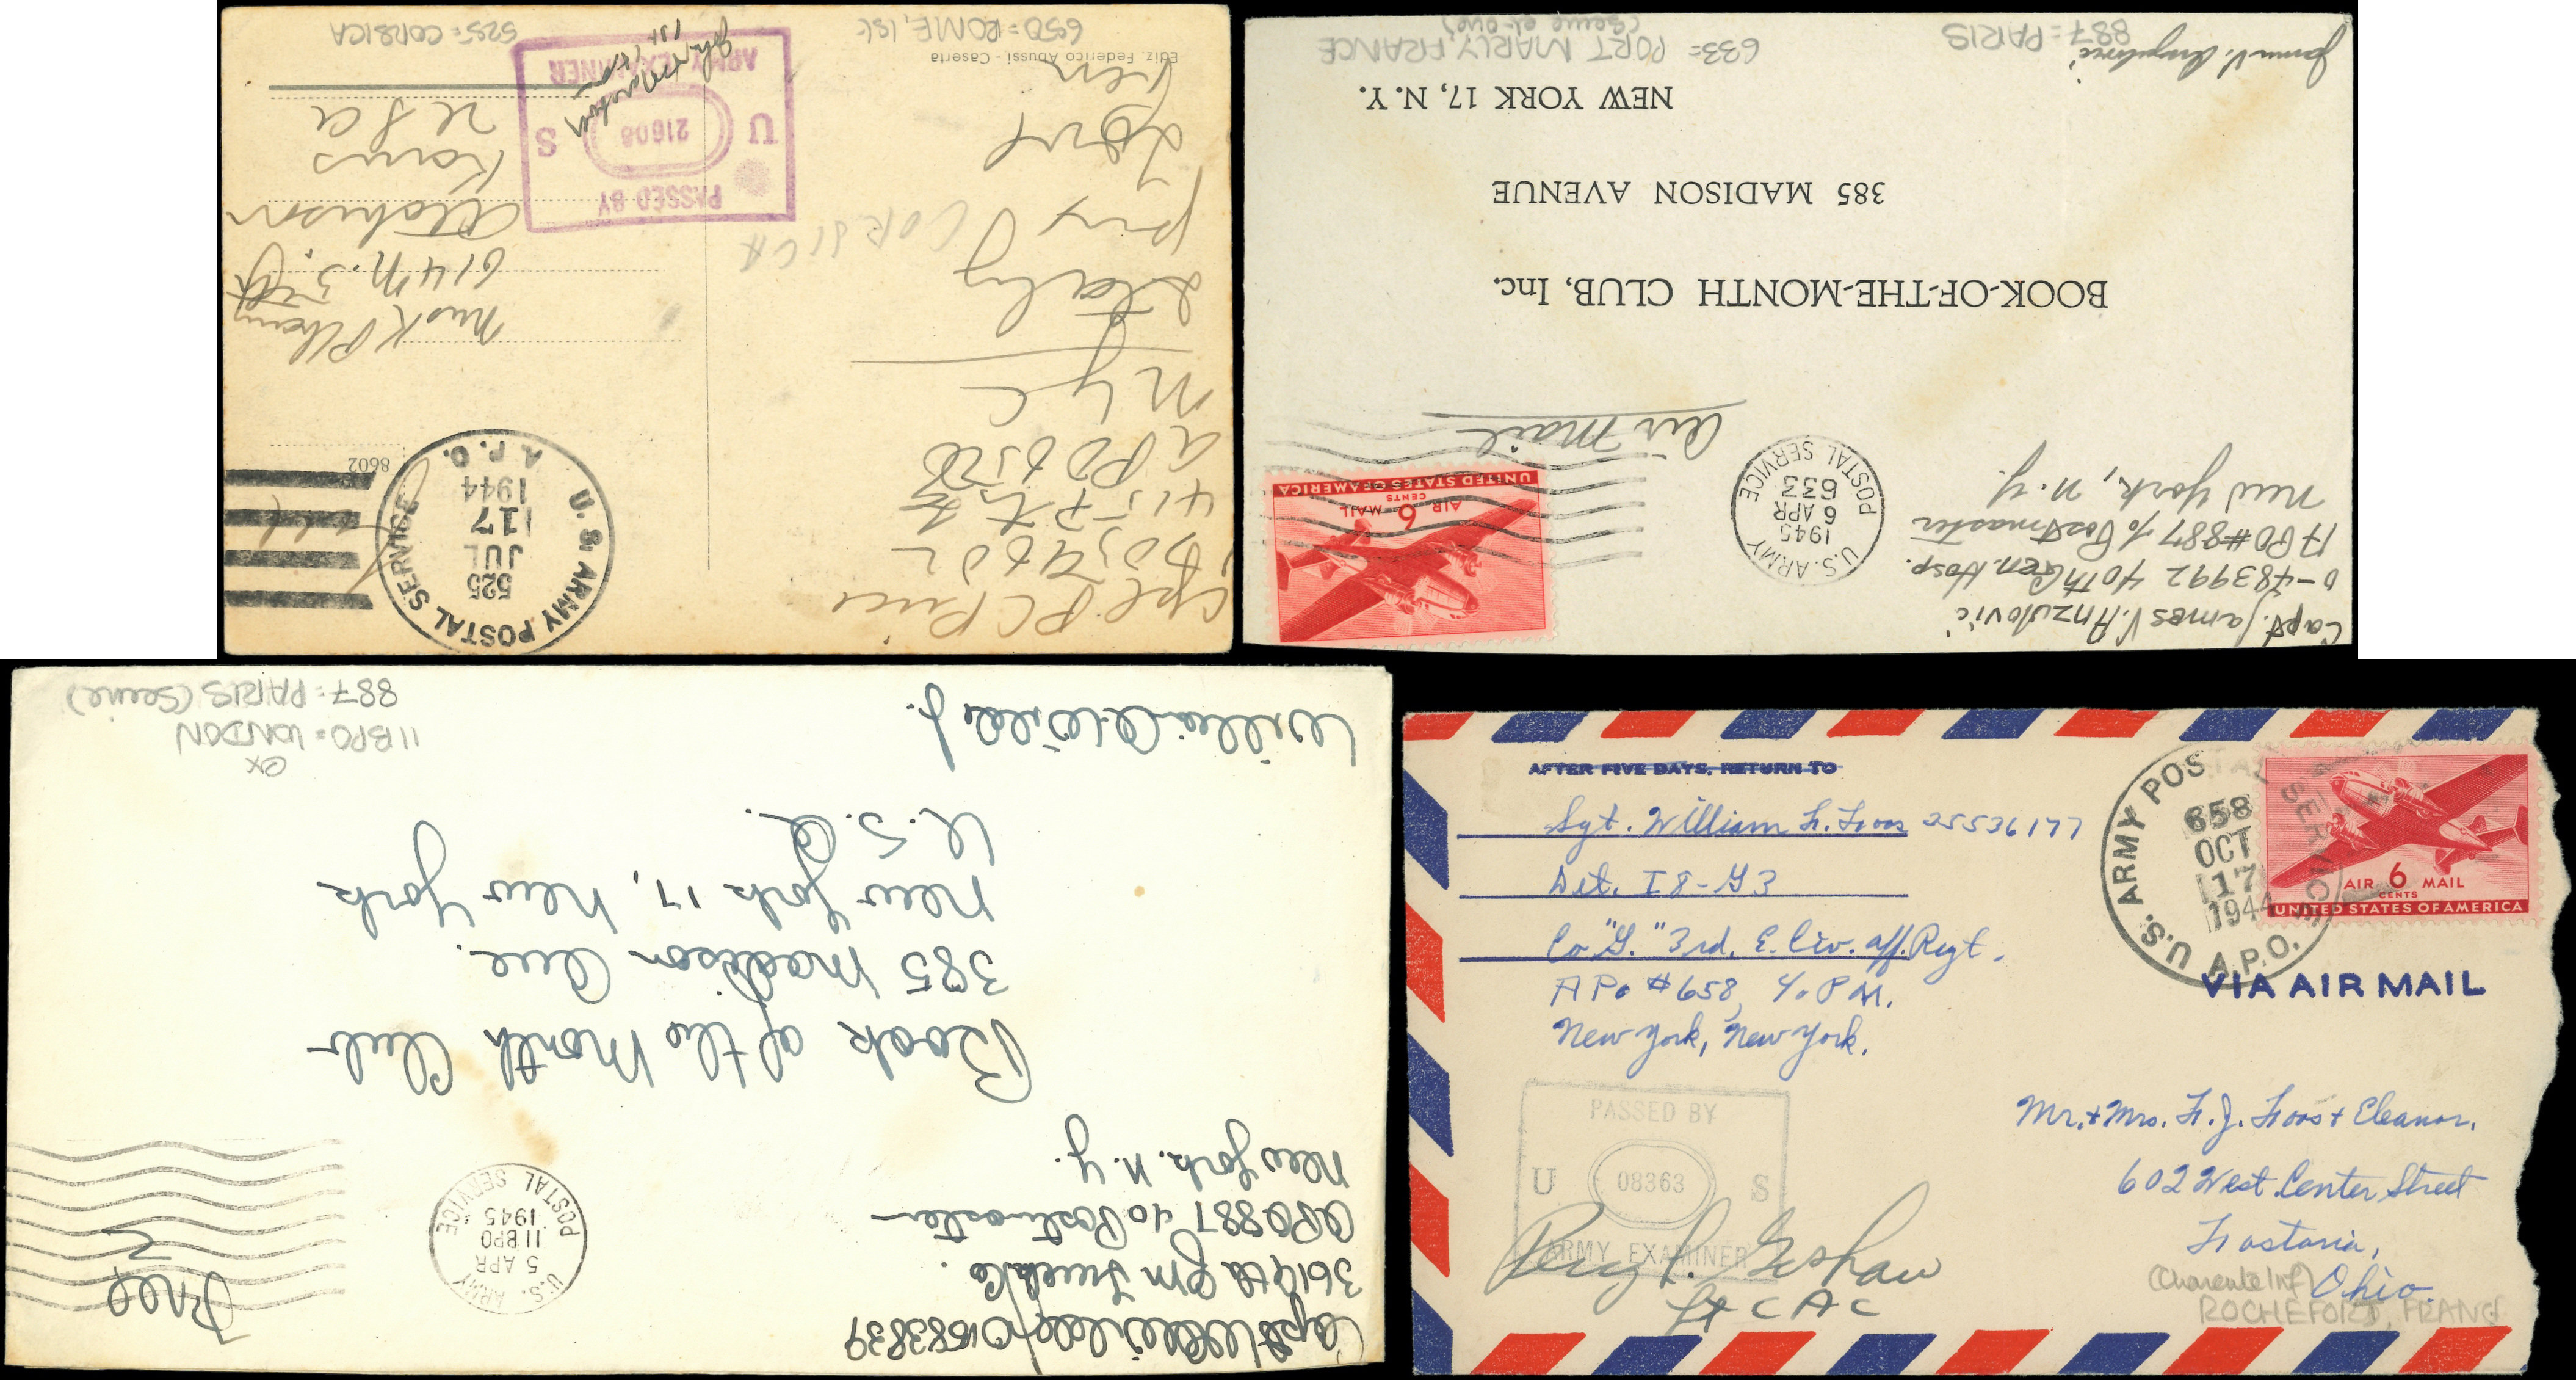 Cpl P C Price
A P O 650
N Y C
Italy
U. S. ARMY POSTAL SERVICE
525
JUL
17
1944
A. P. O.
8602
614 N. 3rd
Atchison
Kans
U S A
CORSICA
PASSED BY
U 21608 S
ARMY EXAMINER
Ediz. Federico Abussi - Caserta
650 = ROME, IS
525 = CORSICA
Capt. James V. Anzulovic
O-483992 40th Gen. Hosp.
APO #887 c/o Postmaster
New York, N.Y.
U.S. ARMY
1945
6 APR
633
POSTAL SERVICE
AIR 6 MAIL
CENTS
UNITED STATES OF AMERICA
Air Mail
BOOK-OF-THE-MONTH CLUB, Inc.
385 MADISON AVENUE
NEW YORK 17, N. Y.
James V. Anzulovic
887 = PARIS
633 = PORT MARLY, FRANCE
(Seine et Oise)
Capt W A Wilder O1583839
3614th QM Truck Co.
APO 887 c/o Postmaster
New York. N.Y.
U.S. ARMY
5 APR
11 BPO
1945
POSTAL SERVICE
Free
Book of the Month Club
385 Madison Ave.
New York 17, New York
U. S. A.
William A. Wilder Jr.
11 BPO = LONDON
ex
887 = PARIS (Seine)
AFTER FIVE DAYS, RETURN TO
Sgt. William F. Foos 35536177
Det. I8-G3
Co "G." 3rd. E. Civ. Aff. Regt.
APO #658, c/o P.M.
New York, New York.
U.S. ARMY POSTAL SERVICE
658
OCT
17
1944
A.P.O.
AIR 6 MAIL
CENTS
UNITED STATES OF AMERICA
VIA AIR MAIL
Mr. + Mrs. F. J. Foos + Eleanor.
602 West Center Street
Fostoria,
Ohio.
(Charente Inf)
ROCHEFORT, FRANCE
PASSED BY
U 08363 S
ARMY EXAMINER
Lt C A C